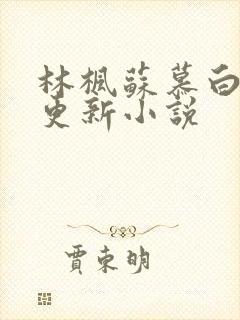 林楓蘇慕白
更新小説
賈東明